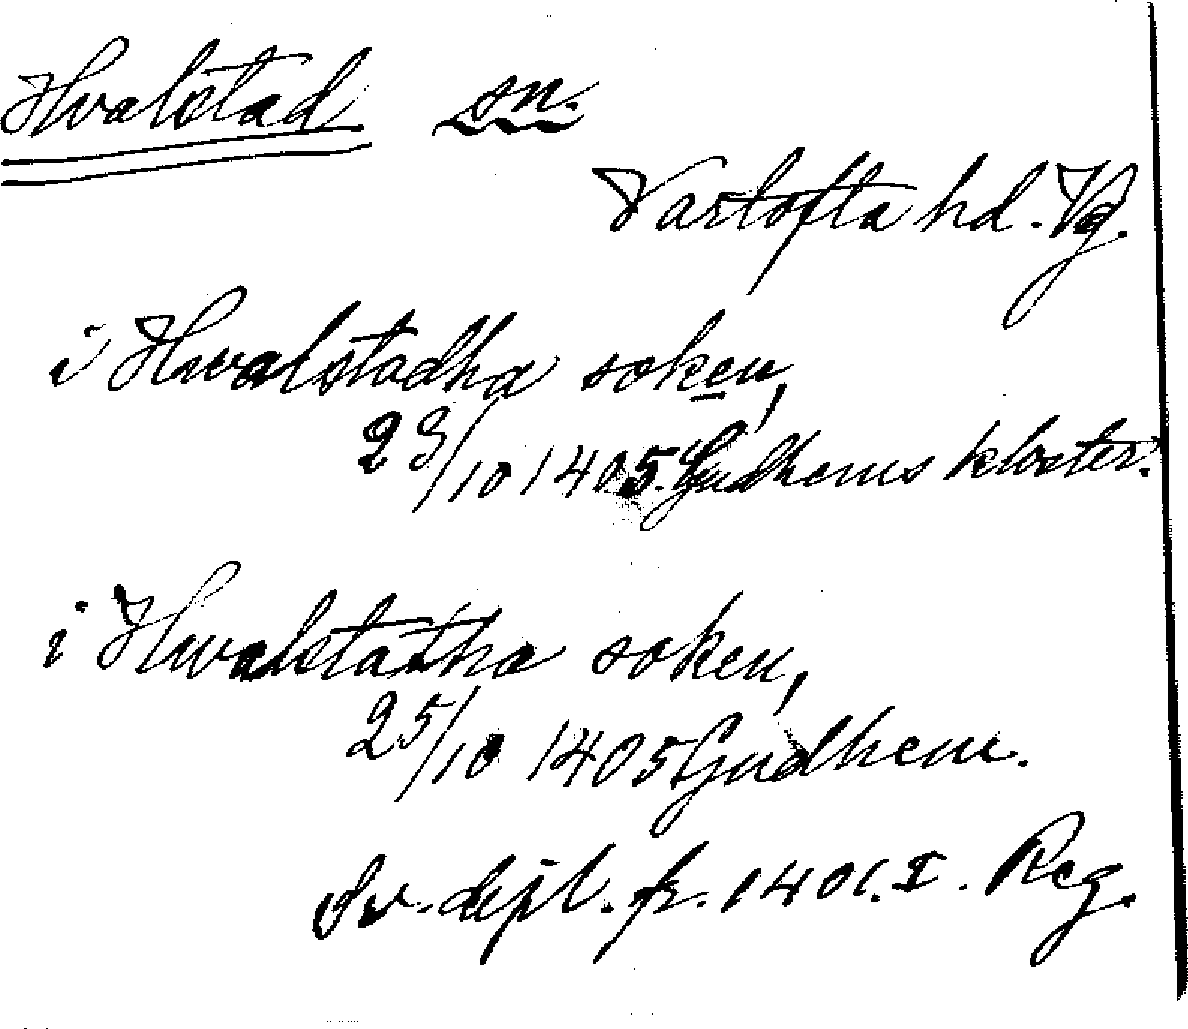 Hvalstad sn.
Vartofta hd. Vg.
i Hwalstadha soken,
23/10 1405. Gudhems kloster.
i Hwalstatha soken,
25/10 1405 Gudhem.
Sv. dipl. fr. 1401. I. Reg.